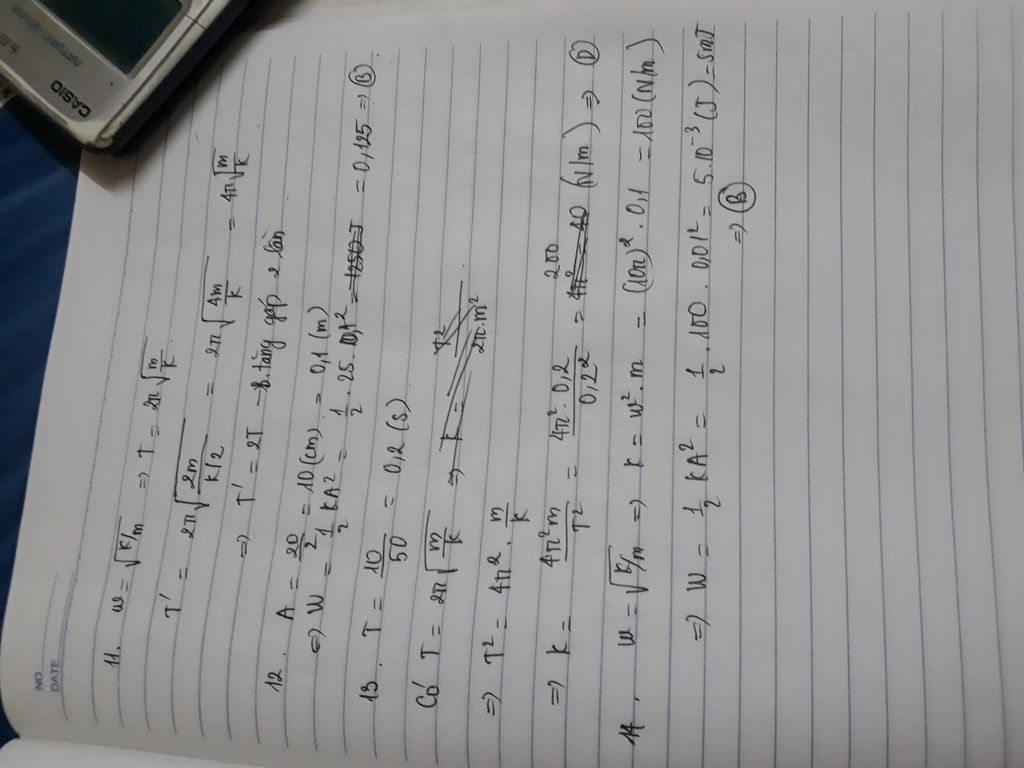 CASIO
NO
DATE
11. w = √k/m => T = 2π√(m/k)
T' = 2π√(2m/(k/2)) = 2π√(4m/k) = 4π√(m/k)
=> T' = 2T -> tăng gấp 2 lần
12. A = 20/2 = 10 (cm) = 0,1 (m)
=> W = 1/2 kA² = 1/2 . 25 . 0,1² = 0,125 => (B)
13. T = 10/50 = 0,2 (s)
Có T = 2π√(m/k) => k = T²/(2π.m²)
=> T² = 4π² . m/k
=> k = 4π²m/T² = 4π².0,2/0,2² = 200 (N/m) => (D)
14. w = √k/m => k = w².m = (10π)² . 0,1 = 100 (N/m)
=> W = 1/2 kA² = 1/2 . 100 . 0,01² = 5.10⁻³ (J) = 5mJ
=> (B)